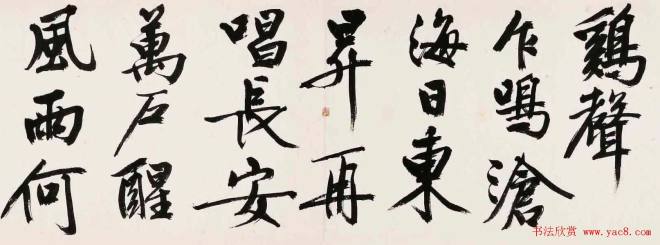 鷄聲
乍鳴滄
海日東
昇再
唱長安
萬戶醒
風雨何
书法欣赏 www.yac8.com